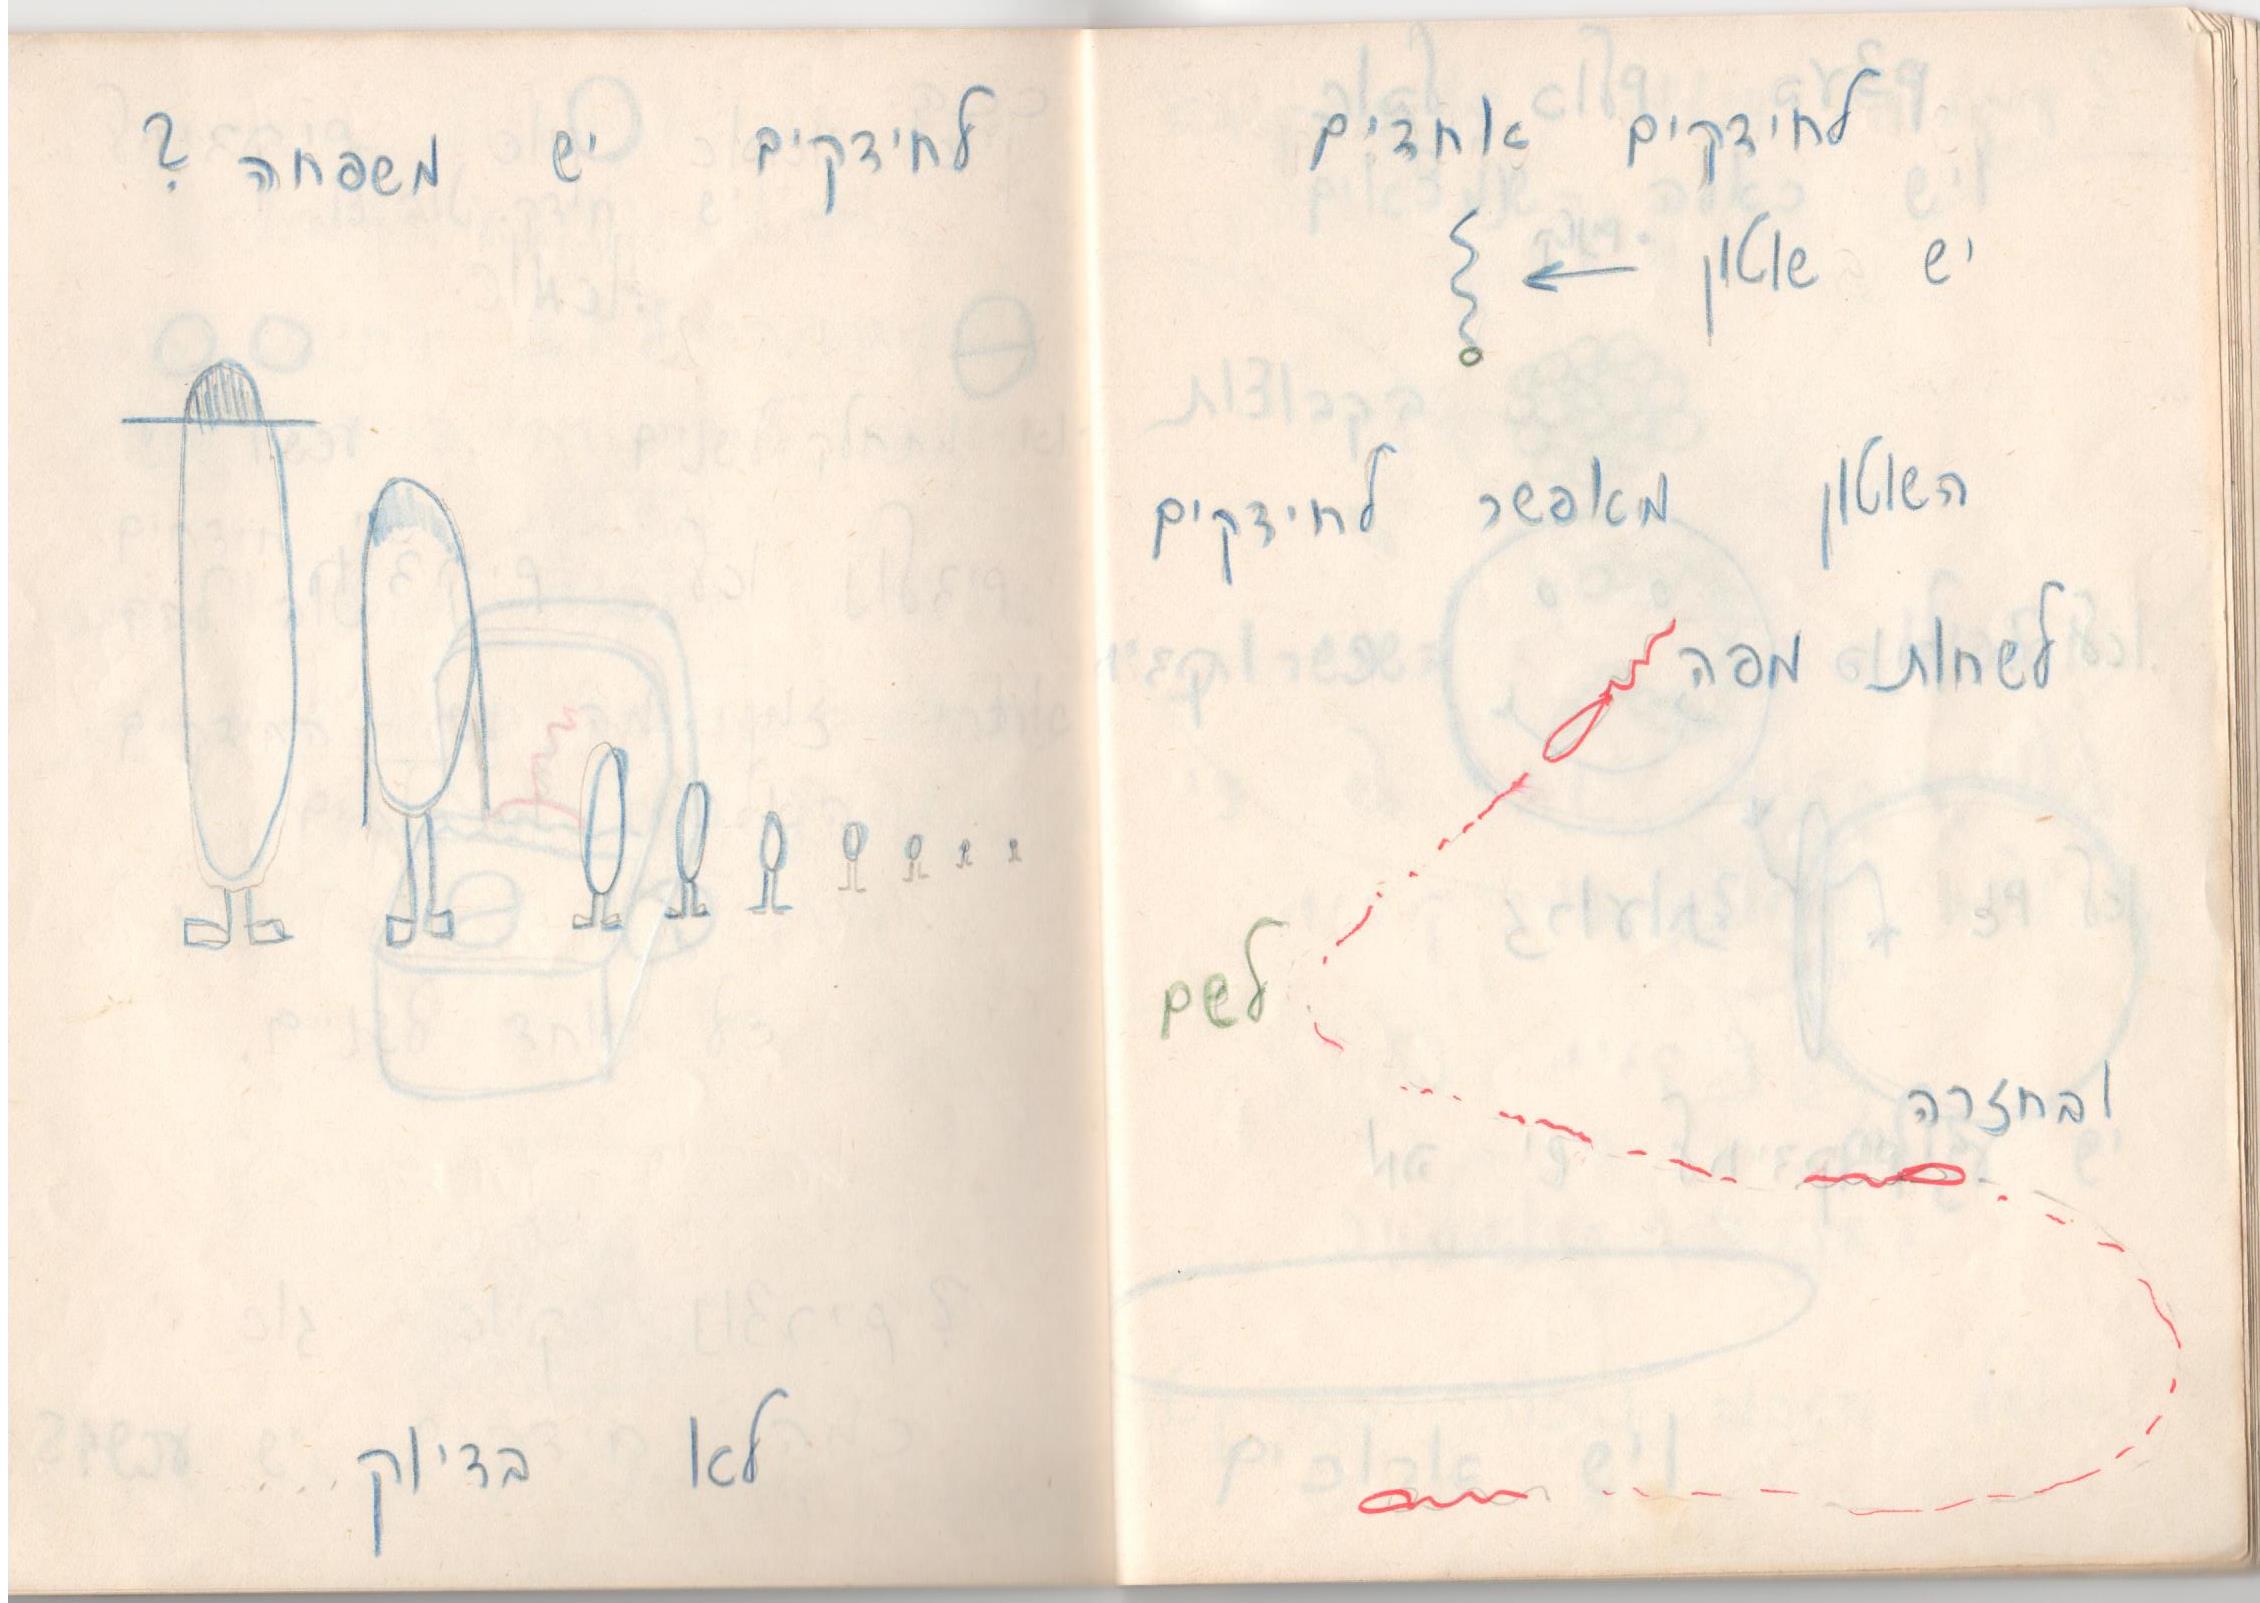 לחידקים אחדים
יש שוטון
השוטון מאפשר לחידקים
לשחות מפה
לשם
ובחזרה
לחידקים יש משפחה ?
לא בדיוק